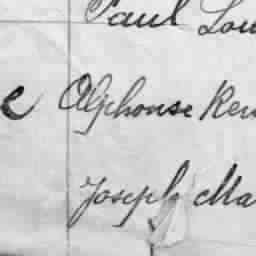 Paul Lou
e Alphonse Ren
Joseph Ma